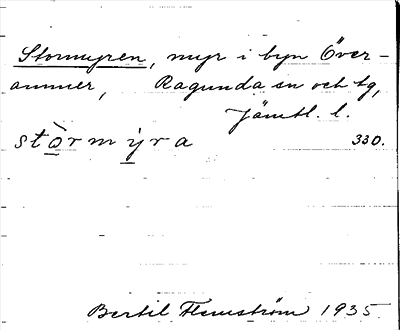 Stormyren, myr i byn Över-
ammer, Ragunda sn och tg,
Jämtl. l.
stòrmyra 330.
Bertil Flemström 1935